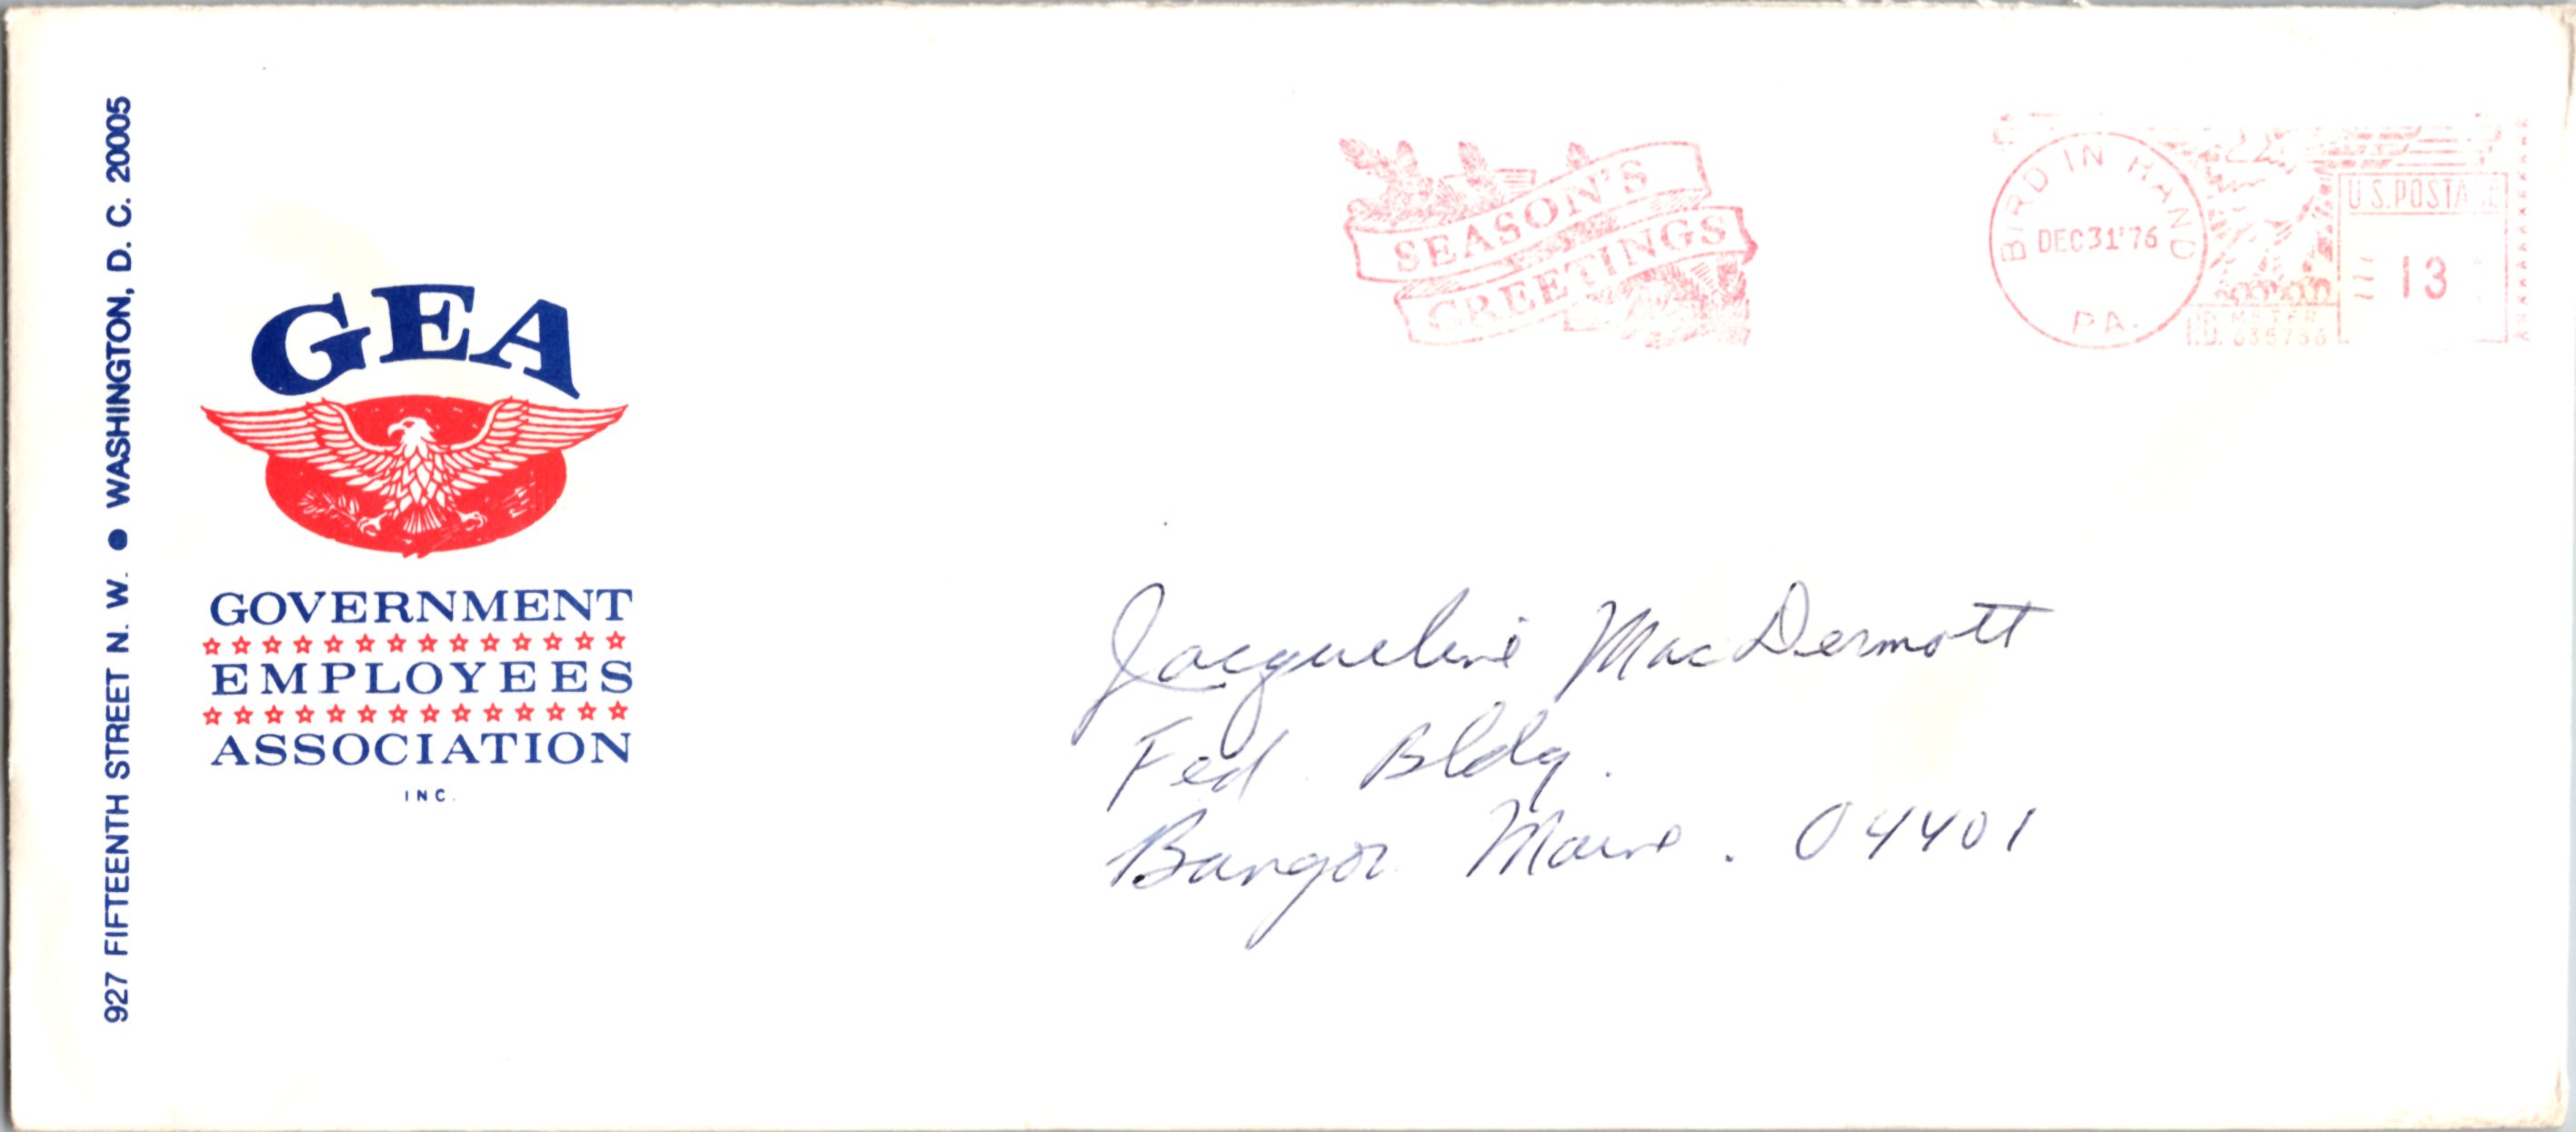 927 FIFTEENTH STREET N. W. ● WASHINGTON, D. C. 20005
GEA
GOVERNMENT
EMPLOYEES
ASSOCIATION
INC.
SEASON'S
GREETINGS
BIRD IN HAND
DEC31'76
PA.
U.S.POSTAGE
13
METER
I.D.
Jacqueline MacDermott
Fed. Bldg.
Bangor Maine. 04401